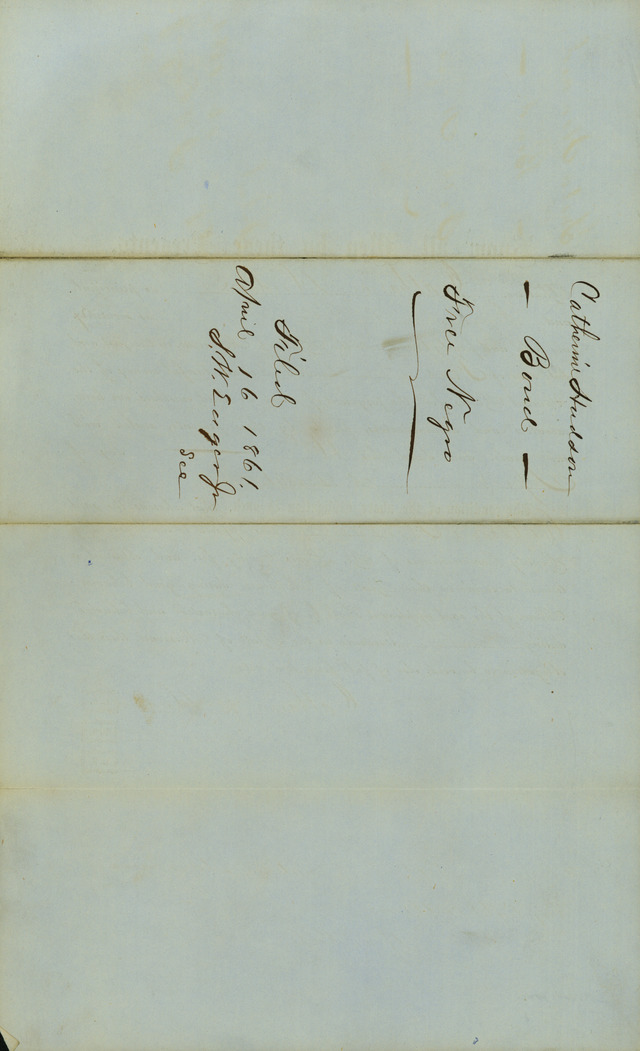 Catherine Hudson
— Bond —
Free Negro
Filed
April 16 1861.
S. W. Eager Jr